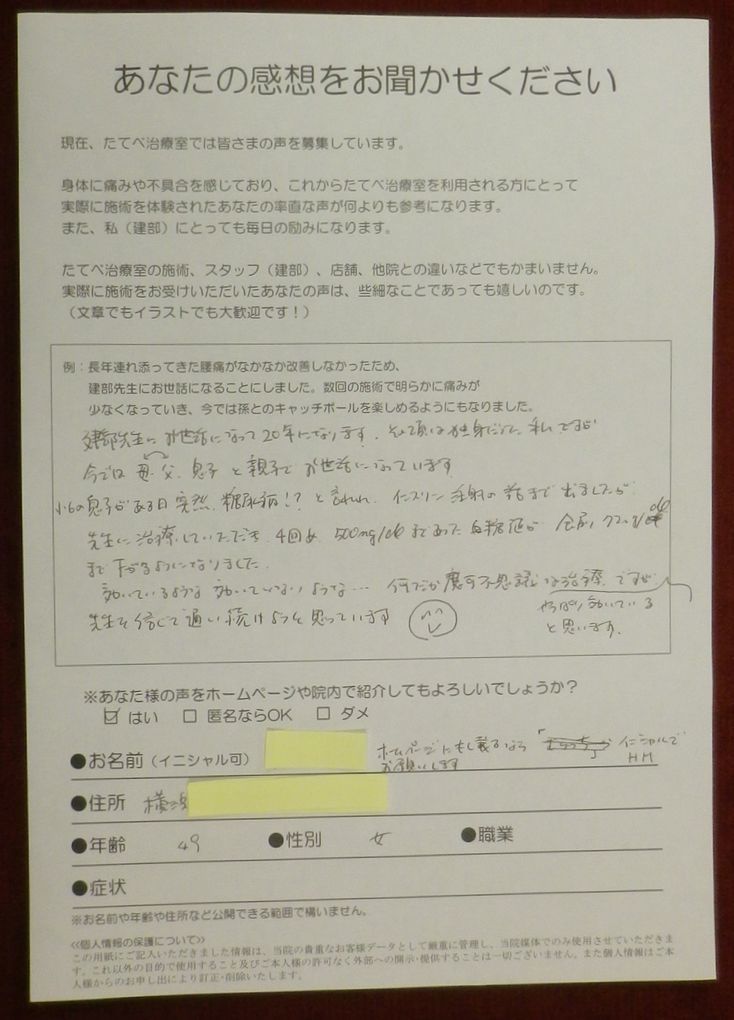 あなたの感想をお聞かせください
現在、たてべ治療室では皆さまの声を募集しています。
身体に痛みや不具合を感じており、これからたてべ治療室を利用される方にとって
実際に施術を体験されたあなたの率直な声が何よりも参考になります。
また、私（建部）にとっても毎日の励みになります。
たてべ治療室の施術、スタッフ（建部）、店舗、他院との違いなどでもかまいません。
実際に施術をお受けいただいたあなたの声は、些細なことであっても嬉しいのです。
（文章でもイラストでも大歓迎です！）
例：長年連れ添ってきた腰痛がなかなか改善しなかったため、
建部先生にお世話になることにしました。数回の施術で明らかに痛みが
少なくなっていき、今では孫とのキャッチボールを楽しめるようにもなりました。
建部先生にお世話になって20年になります。その頃は独身だった私ですが
今では母、父、息子と親子でお世話になっています
小6の息子がある日突然、糖尿病!?と言われ、インスリン注射の話まで出ましたが
先生に治療していただき、4回め、500mg/dlまであった血糖値が
まで下がるようになりました。
効いているような効いていないような… 何だか摩可不思議な治療ですが
やっぱり効いている
と思います。
先生を信じて通い続けようと思っています
※あなた様の声をホームページや院内で紹介してもよろしいでしょうか？
☑ はい □ 匿名ならOK □ ダメ
●お名前（イニシャル可） ホームページにもし載るなら イニシャルで
お願いします HM
●住所 横浜
●年齢 49 ●性別 女 ●職業
●症状
※お名前や年齢や住所など公開できる範囲で構いません。
<<個人情報の保護について>>
この用紙にご記入いただきました情報は、当院の貴重なお客様データとして厳重に管理し、当院媒体でのみ使用させていただきま
す。これ以外の目的で使用すること及びご本人様の許可なく外部への開示・提供することは一切ございません。また個人情報はご本
人様からのお申し出により訂正・削除いたします。